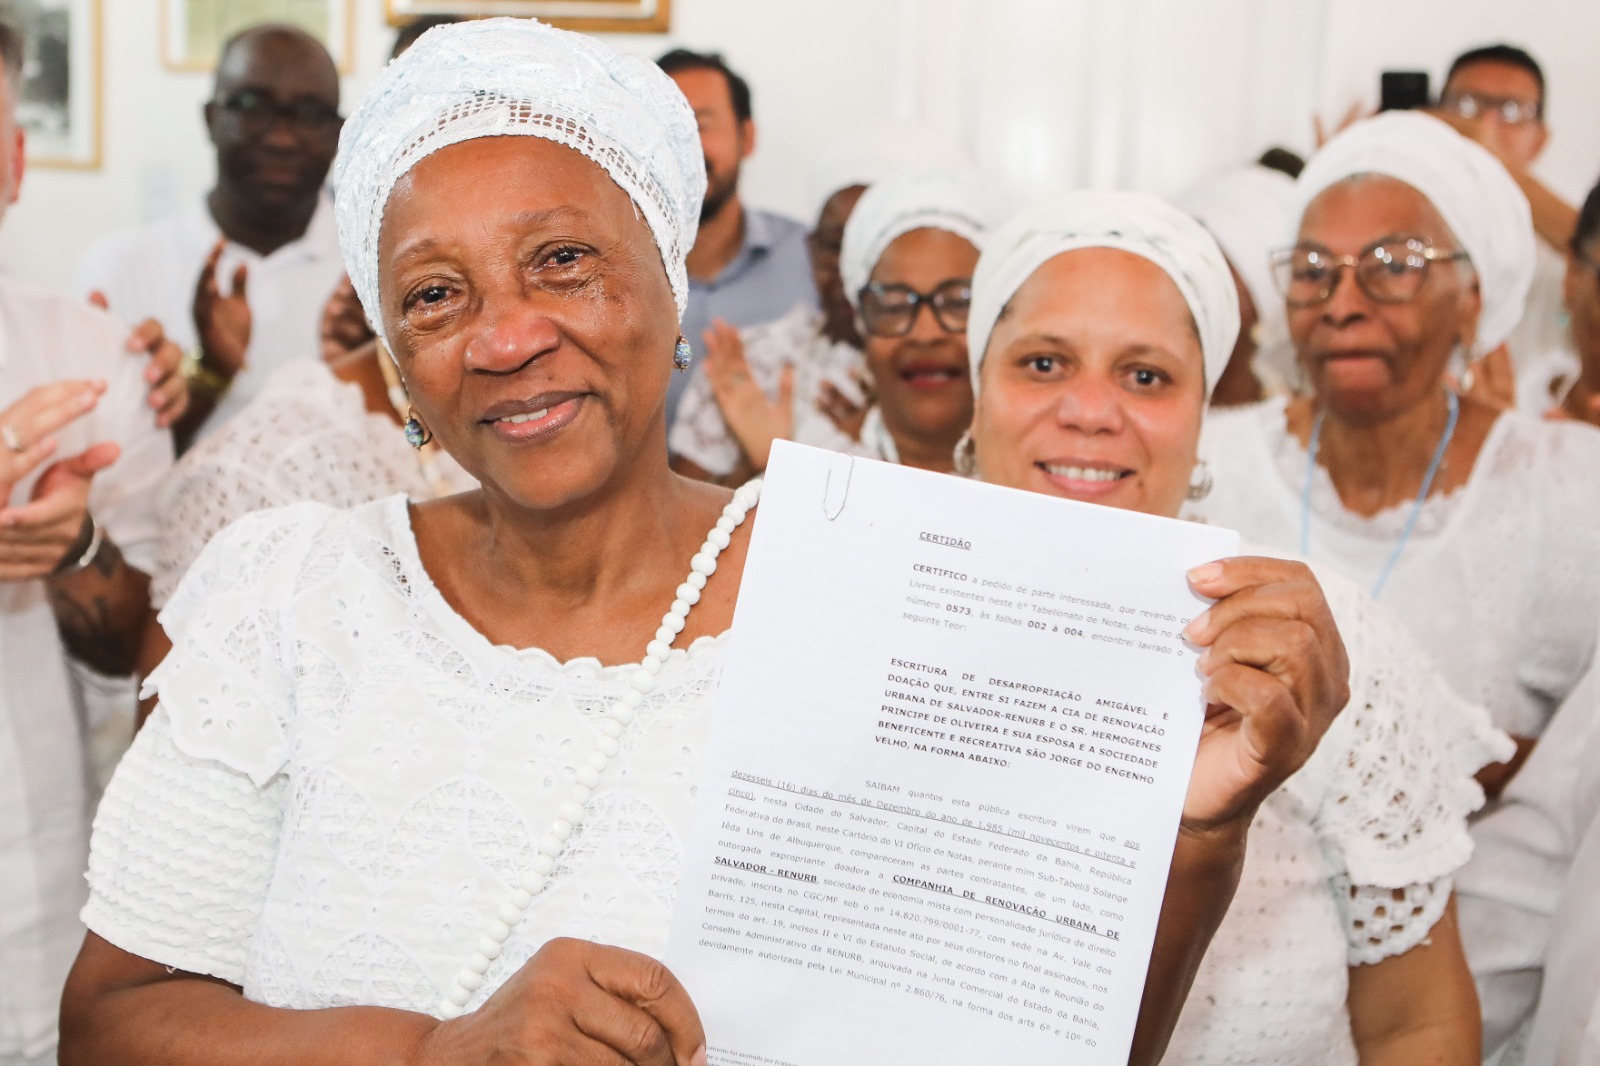 CERTIDÃO
CERTIFICO a pedido de parte interessada, que revendo os
Livros existentes neste 6º Tabelionato de Notas, deles no de
número 0573, às folhas 002 à 004, encontrei lavrado o
seguinte Teor:
ESCRITURA DE DESAPROPRIAÇÃO AMIGÁVEL E
DOAÇÃO QUE, ENTRE SI FAZEM A CIA DE RENOVAÇÃO
URBANA DE SALVADOR-RENURB E O SR. HERMOGENES
PRINCIPE DE OLIVEIRA E SUA ESPOSA E À SOCIEDADE
BENEFICENTE E RECREATIVA SÃO JORGE DO ENGENHO
VELHO, NA FORMA ABAIXO:
SAIBAM quantos esta pública escritura virem que aos
dezesseis (16) dias do mês de Dezembro do ano de 1.985 (mil novecentos e oitenta e
cinco), nesta Cidade do Salvador, Capital do Estado Federado da Bahia, República
Federativa do Brasil, neste Cartório do VI Ofício de Notas, perante mim Sub-Tabeliã Solange
Iêda Lins de Albuquerque, compareceram as partes contratantes, de um lado, como
outorgada expropriante doadora a COMPANHIA DE RENOVAÇÃO URBANA DE
SALVADOR - RENURB, sociedade de economia mista com personalidade jurídica de direito
privado, inscrita no CGC/MF sob o nº 14.820.799/0001-77, com sede na Av. Vale dos
Barris, 125, nesta Capital, representada neste ato por seus diretores no final assinados, nos
termos do art. 19, incisos II e VI do Estatuto Social, de acordo com a Ata de Reunião do
Conselho Administrativo da RENURB, arquivada na Junta Comercial do Estado da Bahia,
devidamente autorizada pela Lei Municipal nº 2.860/76, na forma dos arts 6º e 10º do
foi assinado por